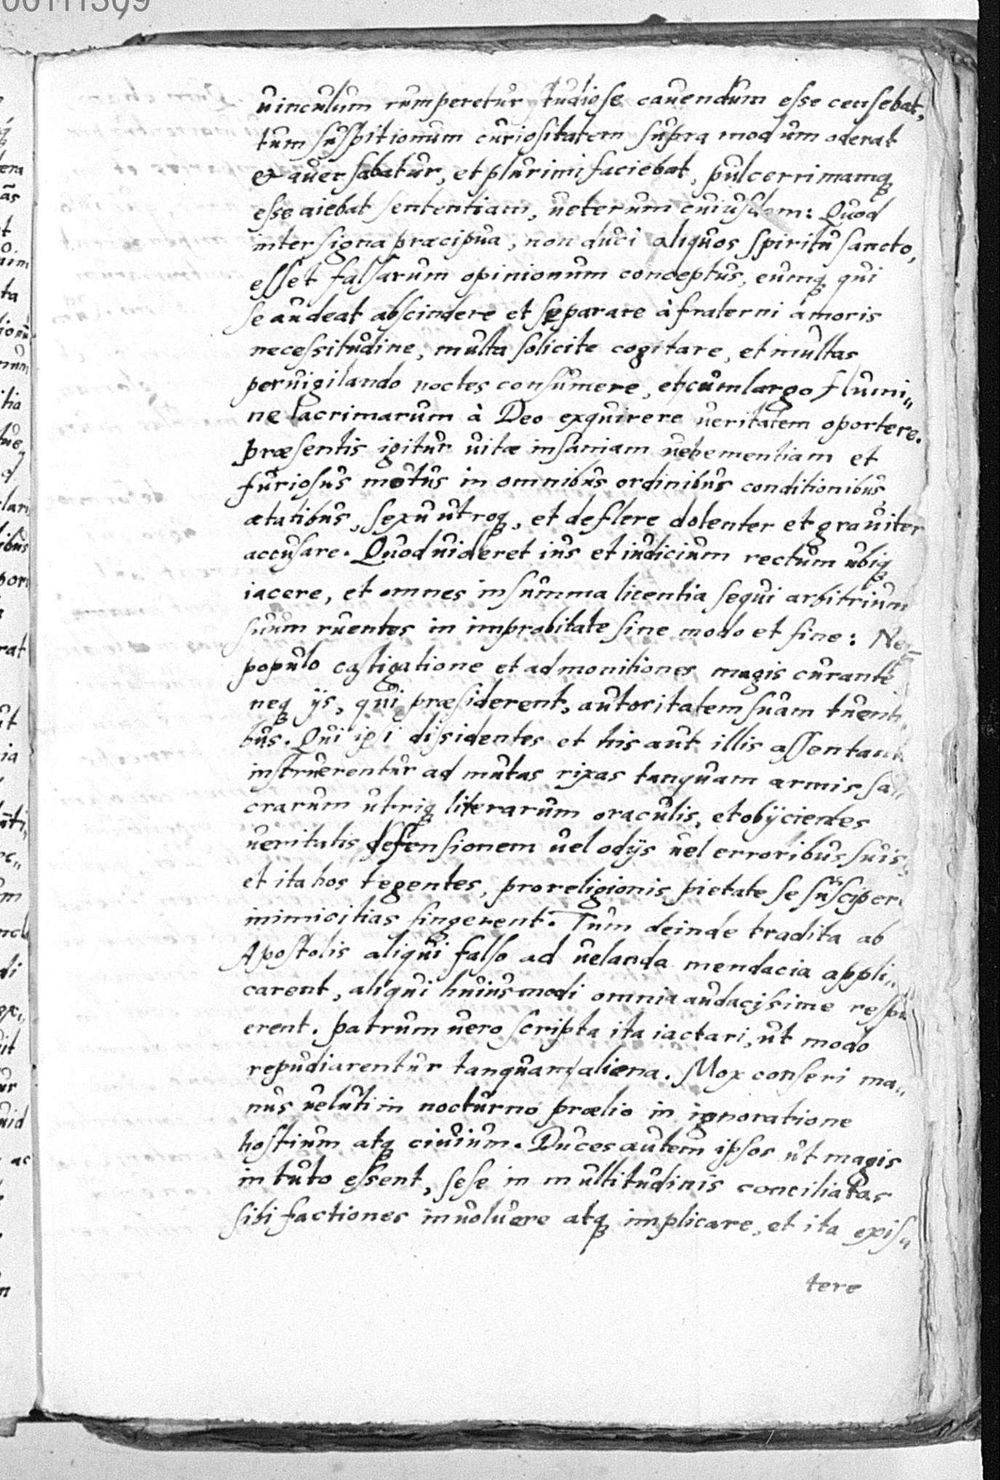 00111309
uinculum rumperetur studiose cauendum esse censebat,
tum suspitionum curiositatem supra modum oderat
& auersabatur, et plurimi faciebat, pulcerrimamq
esse aiebat sententiam, ueterum cuiusdam: Quod
inter signa præcipua, non duci aliquos spiritu sancto,
esset falsarum opinionum conceptus, eumq qui
se audeat abscindere et separare à fraterni amoris
necessitudine, multa solicite cogitare, et multas
peruigilando noctes consumere, et cum largo flumi„
ne lacrimarum à Deo exquirere ueritatem oportere.
Præsentis igitur uitæ insaniam uehementiam et
furiosus motus in omnibus ordinibus conditionibus
ætatibus, sexu utroq, et deflere dolenter et grauiter
accusare. Quod uideret ius et iudicium rectum ubiq
iacere, et omnes in summa licentia sequi arbitrium
suum ruentes in improbitate sine modo et fine: Neq
populo castigatione et admonitiones magis curante
neq ijs, qui præsiderent, autoritatem suam tuenti
bus. Qui ipsi dissidentes et his aut illis assentan
instruerentur ad mutuas rixas tanquam armis sa„
crarum utriq literarum oraculis, et obijcientes
ueritatis deffensionem uel odijs uel erroribus suis,
et ita hos tegentes, pro religionis pietate se susciper
inimicitias fingerent. Tum deinde tradita ab
Apostolis aliqui falso ad uelanda mendacia appli„
carent, aliqui huiusmodi omnia audacissime respu
erent. Patrum uero scripta ita iactari, ut modo
repudiarentur tanquam aliena. Mox conseri ma„
nus ueluti in nocturno prælio in ignoratione
hostium atq ciuium. Duces autem ipsos ut magis
in tuto essent, sese in multitudinis conciliatas
sibi factiones inuoluere atq implicare, et ita exis„
tere